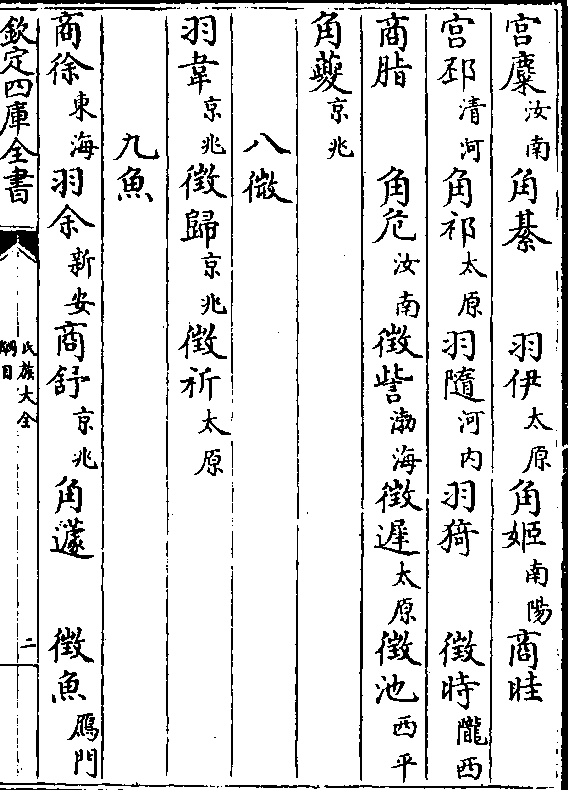 宫麋汝南 角綦 羽伊太原 角姬南陽 商眭
宫邳清河 角祁太原 羽隨河内 羽猗 徵時隴西
商脂 角危汝南 徵訾渤海 徵遲太原 徵池西平
角夔京兆
八微
羽韋京兆 徵歸京兆 徵祈太原
九魚
商徐東海 羽余新安 商舒京兆 角蘧 徵魚鴈門
欽定四庫全書
氏族大全
綱目
二